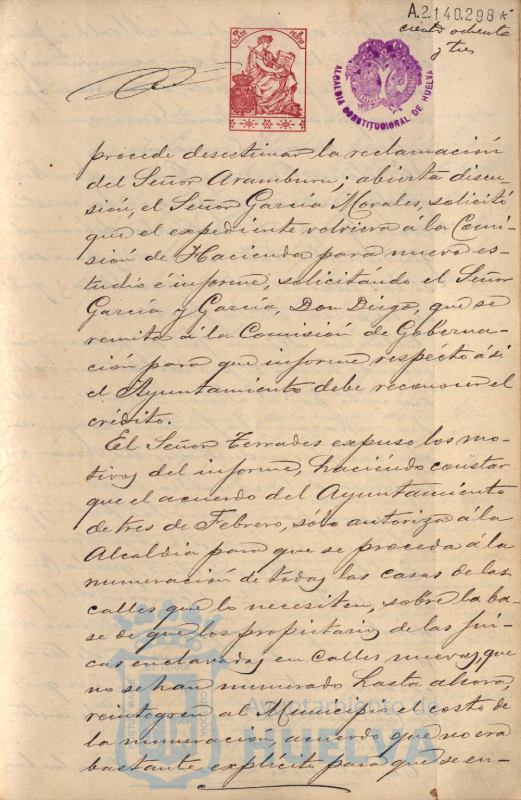 A.2.140.298*
ciento ochenta
y tres
CLASE
PESO
ALCALDIA CONSTITUCIONAL DE HUELVA
procede desestimar la reclamación
del Señor Aramburu; abierta discu-
sión, el Señor García Morales, solicitó
que el expediente volviera á la Comi-
sión de Hacienda para nuevo es-
tudio é informe, solicitando el Señor
García y García, Don Diego, que se
remita á la Comisión de Goberna-
ción para que informe respecto á si
el Ayuntamiento debe reconocer el
crédito.
El Señor Terrades expuso los mo-
tivos del informe, haciendo constar
que el acuerdo del Ayuntamiento
de tres de Febrero, sólo autoriza á la
Alcaldía para que se proceda á la
numeración de todas las casas de las
calles que lo necesiten, sobre la ba-
se de que los propietarios de las fin-
cas enclavadas en calles nuevas, que
no se han numerado hasta ahora,
reintegren al Municipio el costo de
la numeración, acuerdo que no era
bastante explícito para que se en-
Ayuntamiento de
HUELVA